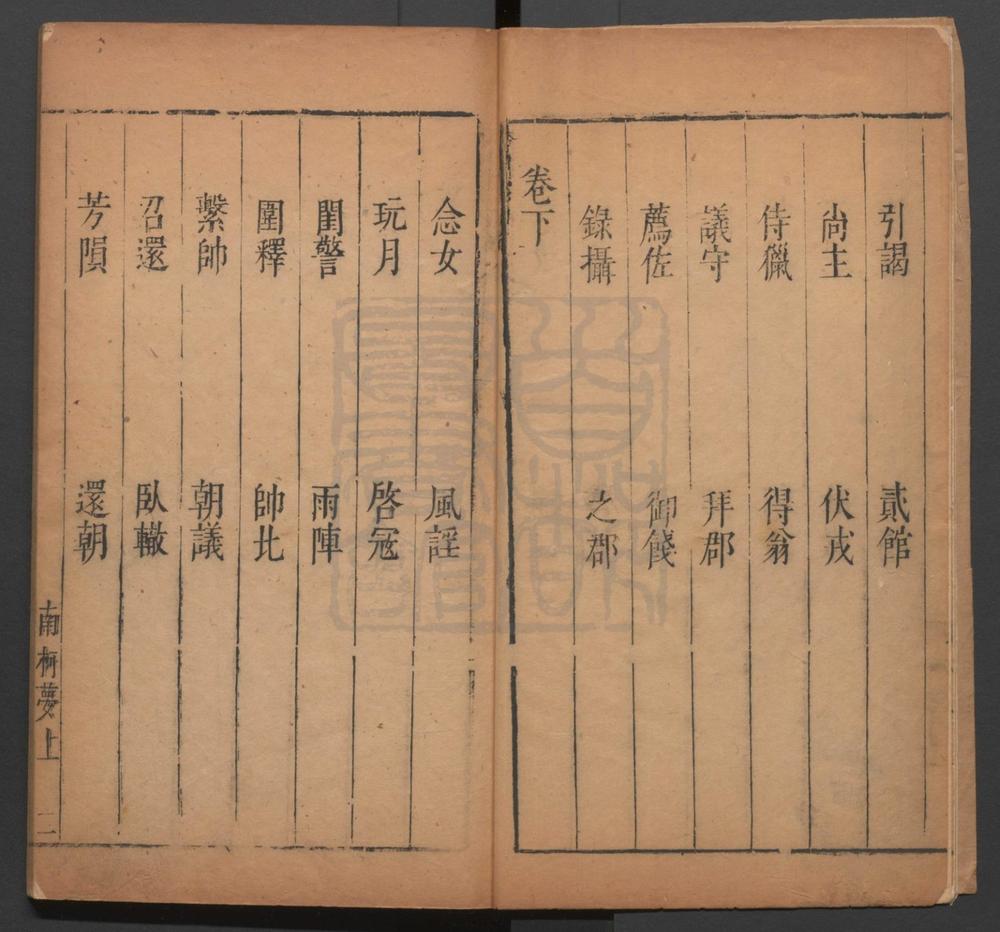 引謁 貳館
尚主 伏戎
侍獵 得翁
議守 拜郡
薦佐 御餞
錄攝 之郡
卷下
念女 風謠
玩月 啓冦
閨警 雨陣
圍釋 帥北
繫帥 朝議
召還 臥轍
芳隕 還朝
南柯夢上 二